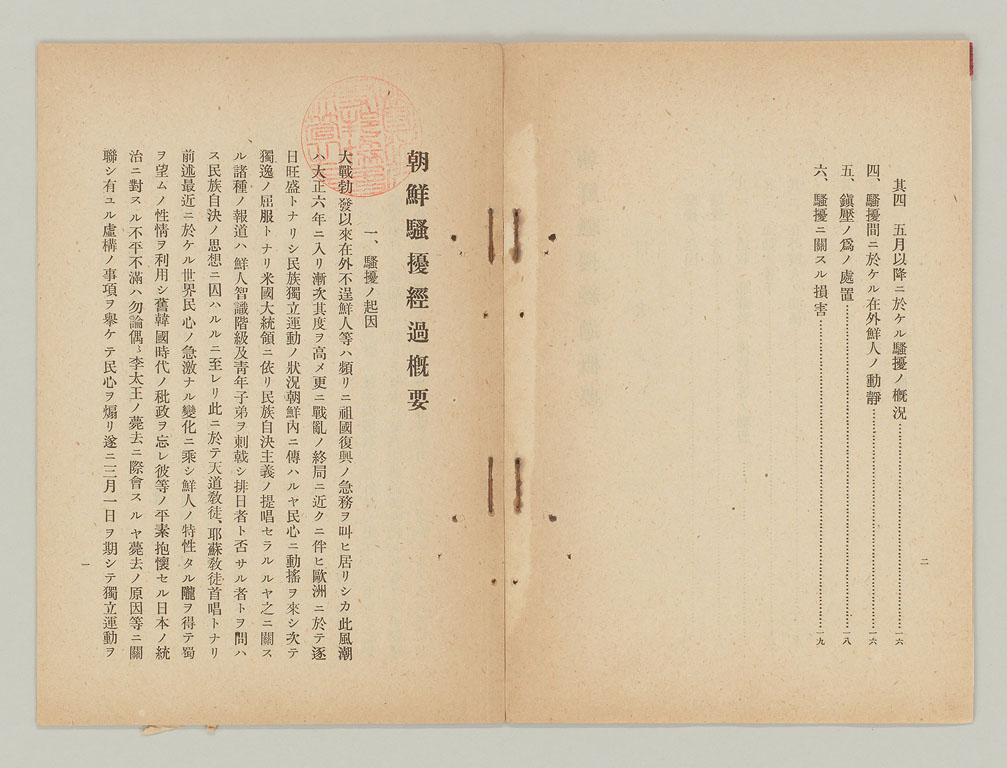 其四　五月以降ニ於ケル騷擾ノ槪況……一六
四、騷擾間ニ於ケル在外鮮人ノ動靜……一六
五、鎭壓ノ爲ノ處置……一八
六、騷擾ニ關スル損害……一九
二
朝鮮騷擾經過槪要
一、騷擾ノ起因
大戰勃發以來在外不逞鮮人等ハ頻リニ祖國復興ノ急務ヲ叫ヒ居リシカ此風潮
ハ大正六年ニ入リ漸次其度ヲ高メ更ニ戰亂ノ終局ニ近クニ伴ヒ歐洲ニ於テ逐
日旺盛トナリシ民族獨立運動ノ狀況朝鮮內ニ傳ハルヤ民心ニ動搖ヲ來シ次テ
獨逸ノ屈服トナリ米國大統領ニ依リ民族自決主義ノ提唱セラルルヤ之ニ關ス
ル諸種ノ報道ハ鮮人智識階級及靑年子弟ヲ刺戟シ排日者ト否サル者トヲ問ハ
ス民族自決ノ思想ニ囚ハルルニ至レリ此ニ於テ天道敎徒、耶蘇敎徒首唱トナリ
前述最近ニ於ケル世界民心ノ急激ナル變化ニ乘シ鮮人ノ特性タル隴ヲ得テ蜀
ヲ望ムノ性情ヲ利用シ舊韓國時代ノ秕政ヲ忘レ彼等ノ平素抱懷セル日本ノ統
治ニ對スル不平不滿ハ勿論偶〻李太王ノ薨去ニ際會スルヤ薨去ノ原因等ニ關
聯シ有ユル虛構ノ事項ヲ擧ケテ民心ヲ煽リ遂ニ三月一日ヲ期シテ獨立運動ヲ
一